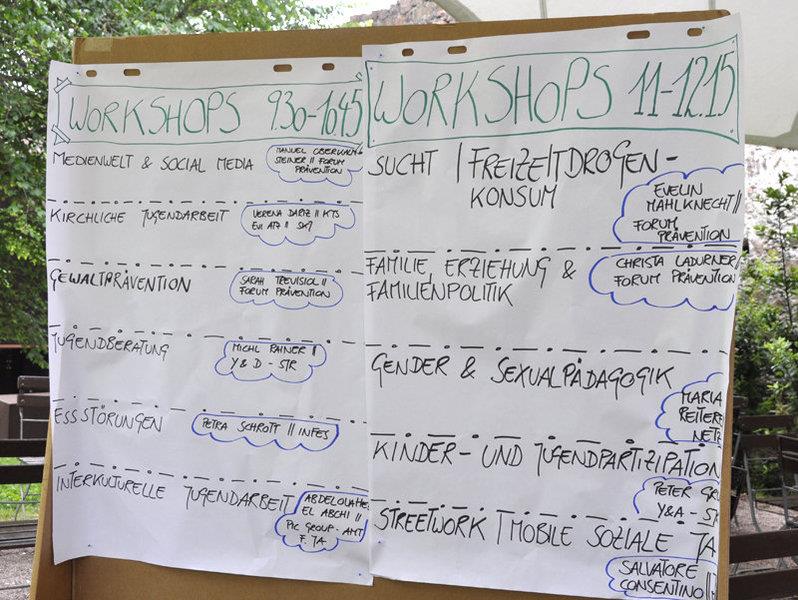 WORKSHOPS 930-1045
MEDIENWELT & SOCIAL MEDIA
MANUEL OBERKALM
STEINER // FORUM
PRÄVENTION
KIRCHLICHE JUGENDARBEIT
VERENA DARIZ // KJS
EVI ATZ // SKJ
GEWALTPRÄVENTION
SARAH TREVISIOL //
FORUM PRÄVENTION
JUGENDBERATUNG
MICHL RAINER //
Y& D - STR
ESSSTÖRUNGEN
PETRA SCHROTT // INFES
INTERKULTURELLE JUGENDARBEIT
ABDELOUAHED
EL ABCHI //
GROUP - AMT
F. JA
WORKSHOPS 11-12.15
SUCHT / FREIZEITDROGEN-
KONSUM
EVELIN
MAHLKNECHT //
FORUM
PRÄVENTION
FAMILIE, ERZIEHUNG &
FAMILIENPOLITIK
CHRISTA LADURNER //
FORUM PRÄVENTION
GENDER & SEXUALPÄDAGOGIK
MARIA
REITERE
NETZ
KINDER- UND JUGENDPARTIZIPATION
PETER GR
Y&A - ST
STREETWORK / MOBILE SOZIALE JA
SALVATORE
CONSENTINO //